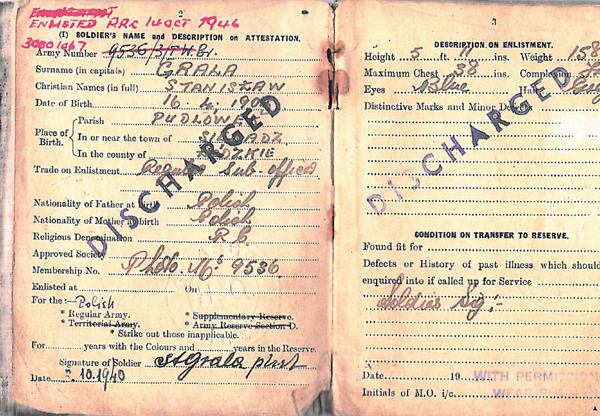 2
ENLISTED ARC 14 OCT 1946
30001067
(I) SOLDIER'S NAME and DESCRIPTION on ATTESTATION.
Army Number 9536/3/P.W.Br.
Surname (in capitals) GRALA
Christian Names (in full) STANISŁAW
Date of Birth 16. 4. 190
Place of Birth.
Parish PUDLOWE
In or near the town of
In the county of
Trade on Enlistment Sub-officer
Nationality of Father at birth Polish
Nationality of Mother at birth Polish
Religious Denomination R.C.
Approved Society
Membership No. Photo. No: 9536
Enlisted at On
For the:— Polish
* Regular Army. * Supplementary Reserve.
* Territorial Army. * Army Reserve Section D.
* Strike out those inapplicable.
For years with the Colours and years in the Reserve.
Signature of Soldier StGrala
Date .10.1940
DISCHARGED
3
DESCRIPTION ON ENLISTMENT.
Height 5 ft. 7 ins. Weight 158
Maximum Chest 38 ins. Complexion
Eyes Blue
Distinctive Marks and Minor
DISCHARGED
CONDITION ON TRANSFER TO RESERVE.
Found fit for
Defects or History of past illness which should
enquired into if called up for Service
Soldier Sig:
Date 19
WITH PERMISSION
Initials of M.O. i/c